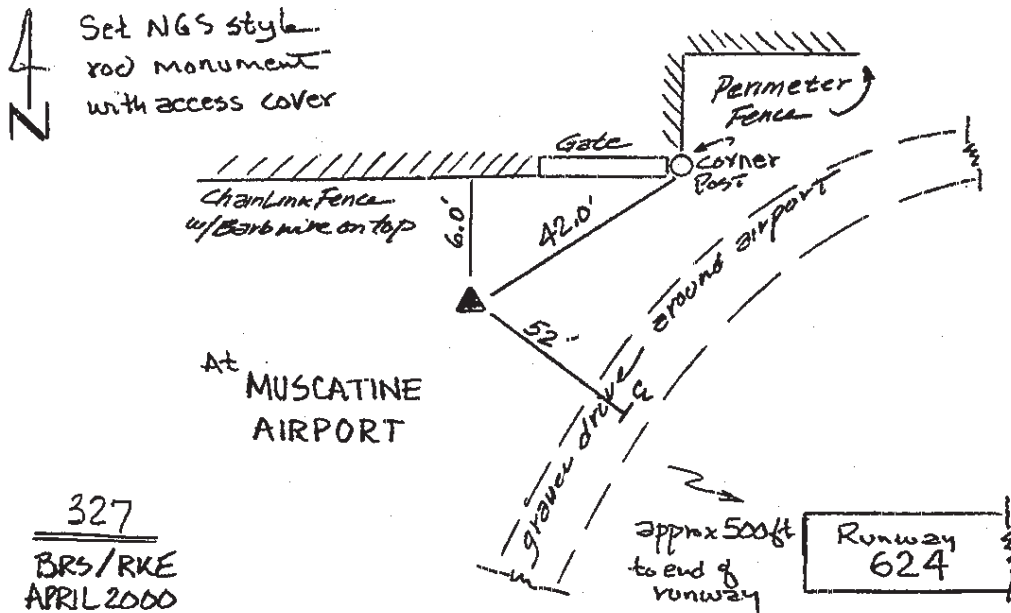 N
Set NGS style
rod monument
with access cover
Perimeter
Fence
Gate
Corner
Post
ChanLink Fence
w/Barbwire on top
6.0'
42.0'
52'
℄
gravel drive around airport
At MUSCATINE
AIRPORT
327
BRS/RKE
APRIL 2000
approx 500ft
to end of
runway
Runway
624